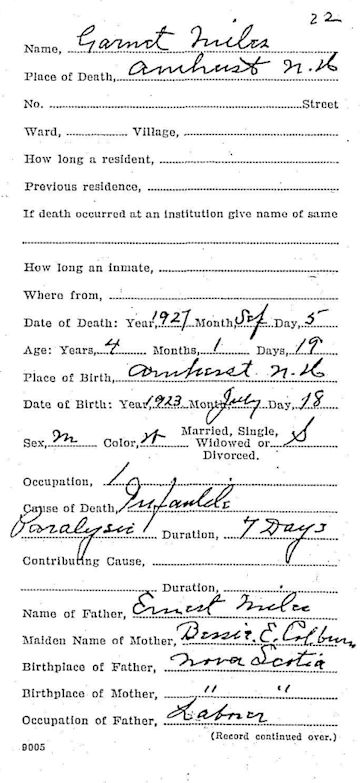 22
Name, Garnet Miles
Place of Death, Amherst N.H
No. Street
Ward, Village,
How long a resident,
Previous residence,
If death occurred at an institution give name of same
How long an inmate,
Where from,
Date of Death: Year, 1927 Month, Sep Day, 5
Age: Years, 4 Months, 1 Days, 19
Place of Birth, Amherst N.H
Date of Birth: Year, 1923 Month, July Day, 18
Sex, M Color, W Married, Single, Widowed or Divorced. S
Occupation, /
Cause of Death, Infantile
Paralysis Duration, 7 Days
Contributing Cause,
Duration,
Name of Father, Ernest Miles
Maiden Name of Mother, Bessie E. Colburn
Birthplace of Father, Nova Scotia
Birthplace of Mother, " "
Occupation of Father, Laborer
(Record continued over.)
9005